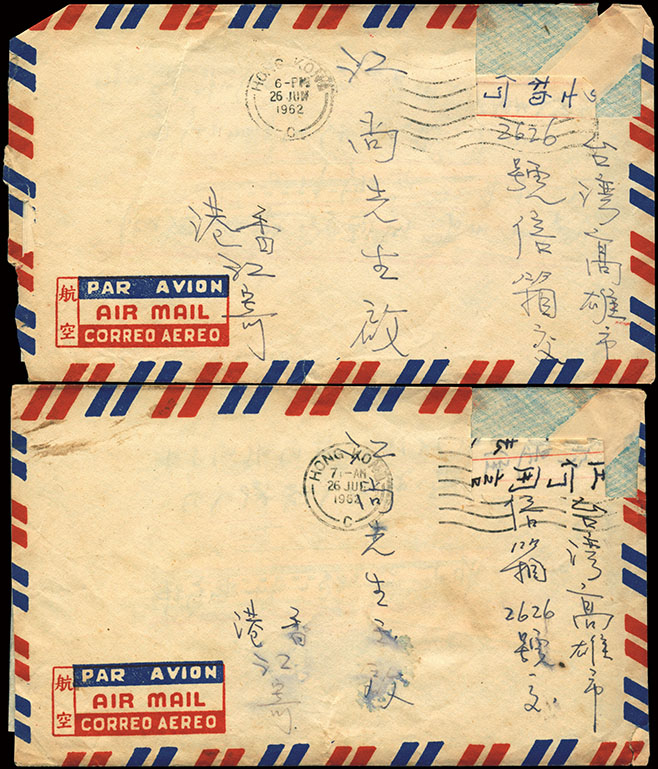 HONG KONG
6-PM
26 JUN
1962
C
台灣高雄市
2626號信箱交
江尚先生啟
香港江寄
航空
PAR AVION
AIR MAIL
CORREO AEREO
HONG KONG
7-AM
26 JUL
1962
C
台灣高雄市
信箱2626號交
江尚先生玉啟
香港江寄
航空
PAR AVION
AIR MAIL
CORREO AEREO